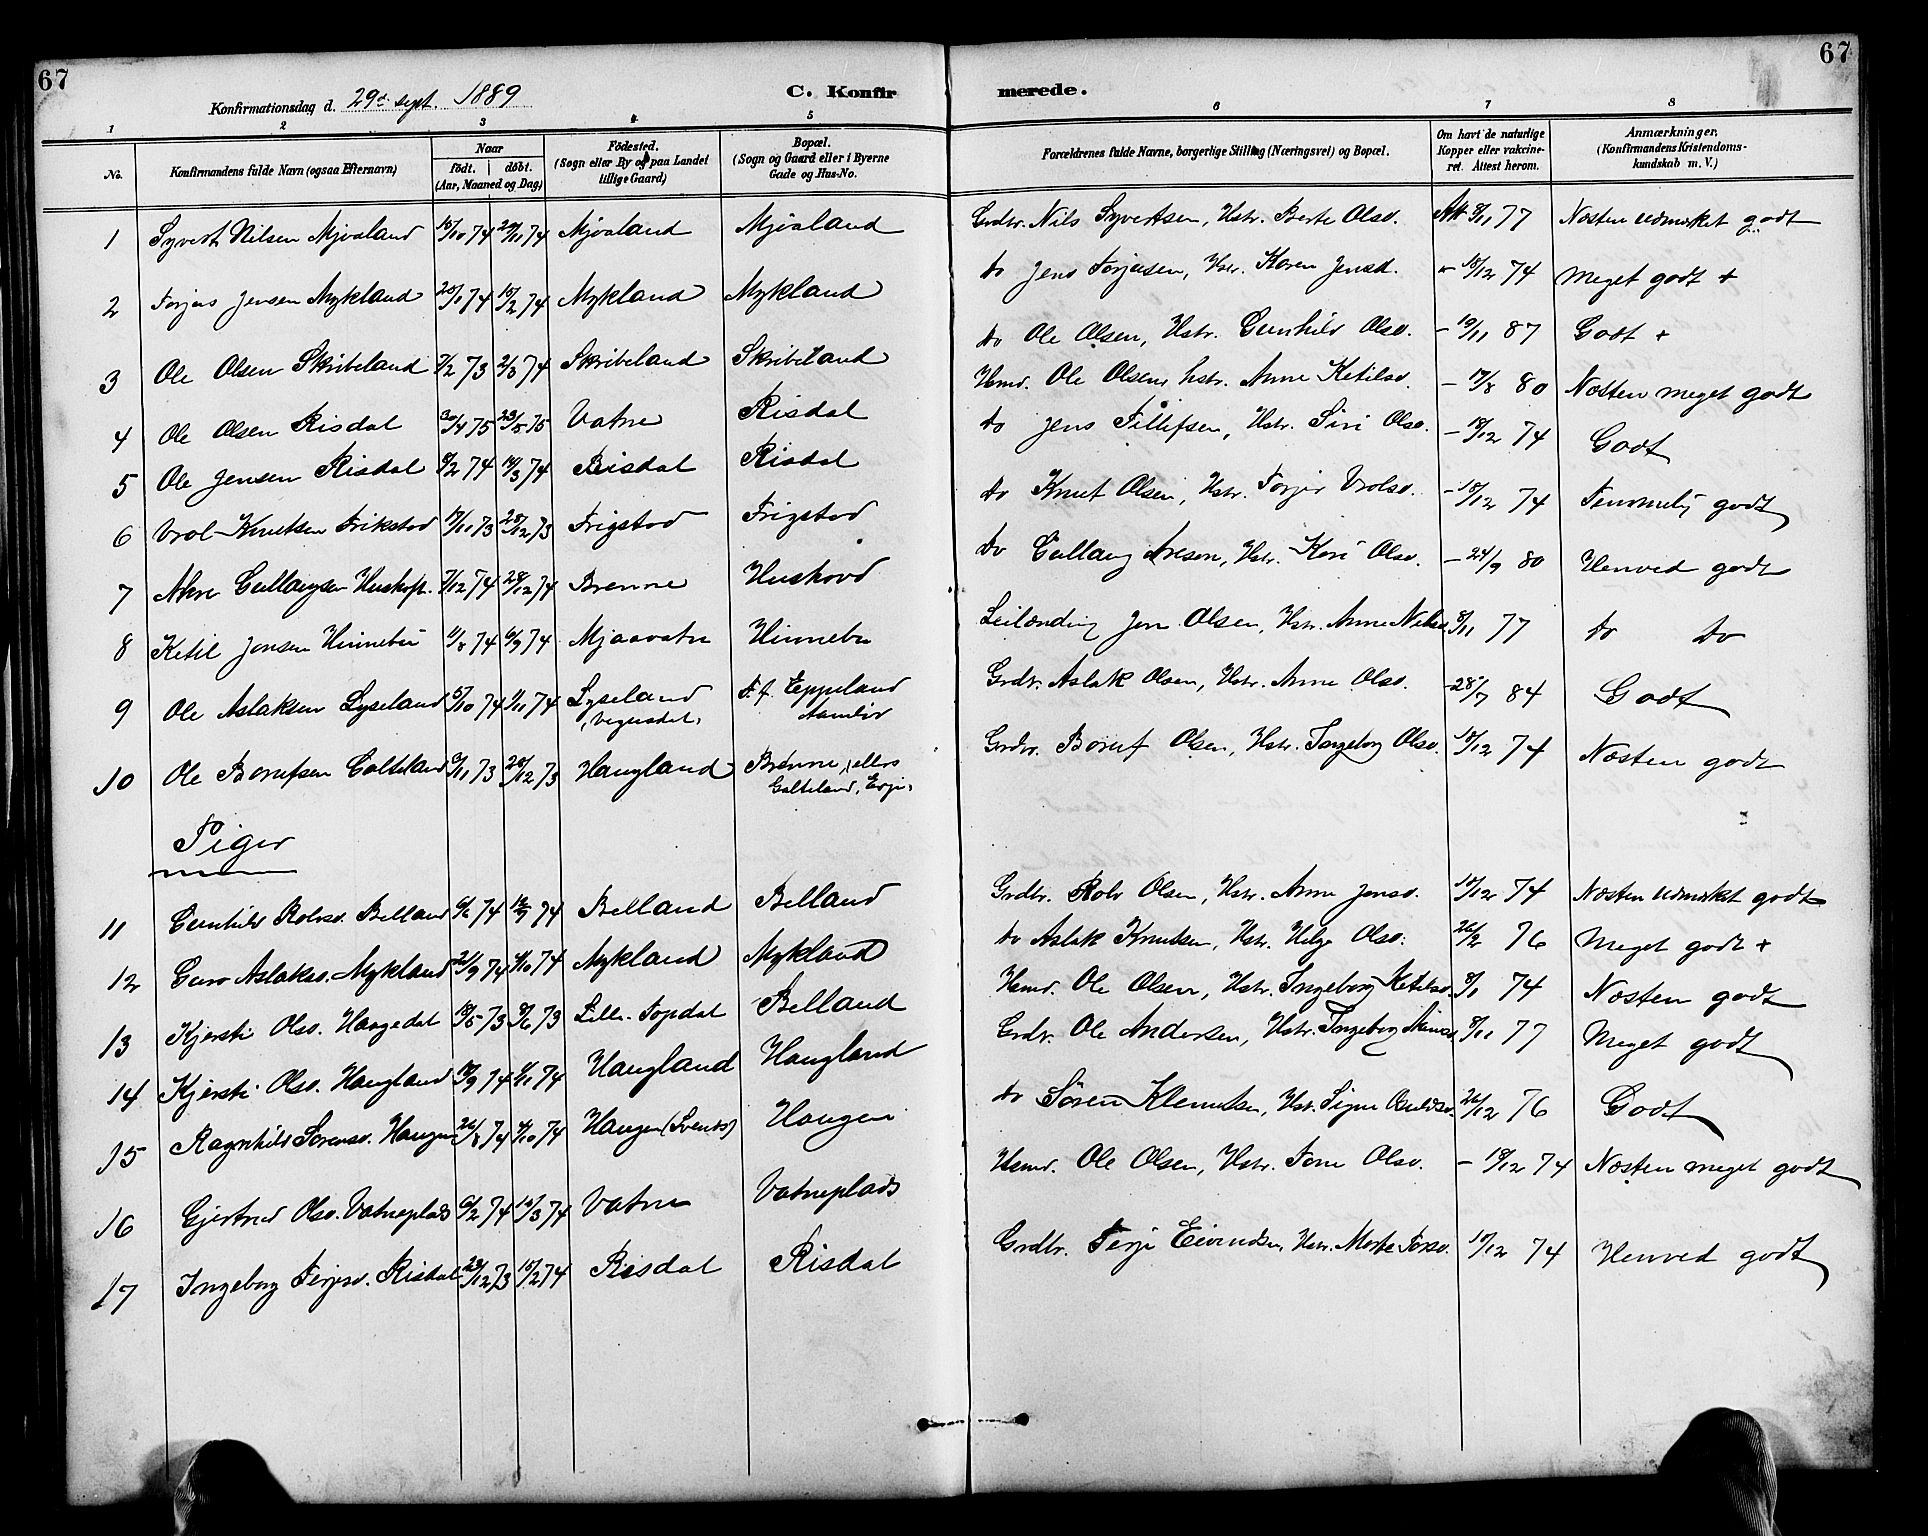 67
67
Konfirmationsdag d. 29de sept. 1889
C. Konfirmerede.
1 2 3 4 5 6 7 8
No.
Konfirmandens fulde Navn (ogsaa Efternavn)
Naar
født. døbt.
(Aar, Maaned og Dag)
Födested.
(Sogn eller By og paa Landet
tillige Gaard)
Bopæl.
(Sogn og Gaard eller i Byerne
Gade og Hus-No.
Forældrenes fulde Navne, borgerlige Stilling (Næringsvei) og Bopæl.
Om havt de naturlige
Kopper eller vakcine-
ret. Attest herom.
Anmærkninger.
(Konfirmandens Kristendoms-
kundskab m. V.)
1 Syvert Nilsen Mjoaland 15/10 74 29/11 74 Mjoaland Mjoaland Grdbr. Nils Syvertsen, Hstr. Berte Olsd. Att 8/11 77 Næsten udmærket godt
2 Torjus Jensen Mykland 20/1 74 15/2 74 Mykland Mykland do Jens Torjusen, Hstr. Karen Jensd. 18/12 74 Meget godt +
3 Ole Olsen Skribeland 7/2 73 2/3 74 Skribeland Skribeland do Ole Olsen, Hstr. Gunhild Olsd. - 19/11 87 Godt +
4 Ole Olsen Risdal 30/4 75 23/5 75 Vatne Risdal Hsmd. Ole Olsen, hstr. Anne Ketilsd. - 17/8 80 Næsten meget godt
5 Ole Jensen Risdal 8/2 74 14/3 74 Risdal Risdal do Jens Tellefsen, Hstr. Siri Olsd. - 18/12 74 Godt
6 Vrol Knutsen Frikstad 17/11 73 28/12 73 Frigstad Frigstad do Knut Olsen, Hstr. Torjer Vrolsd. - 18/12 74 Temmelig godt
7 Gullaugsen 7/12 74 28/12 74 Brenne Hushovd do Gullaug Aresen, Hstr. Kari Olsd. - 24/9 80 Henved godt
8 Ketil Jonsen Hinnebu 11/8 74 6/9 74 Mjaavatn Hinnebu Leilænding Jon Olsen, Hstr. Anne Nilsd. 8/11 77 do do
9 Ole Aslaksen Lyseland 5/10 74 1/11 74 Lyseland
Vegusdal,
F. f. Eppeland
Aamlid
Grdbr. Aslak Olsen, Hstr. Anne Olsd. - 28/7 84 Godt
10 Ole Borufsen Galteland 9/11 73 26/12 73 Haugland Brenne, ellers
Galteland, Evje,
Grdbr. Boruf Olsen, Hstr. Ingeborg Olsd. 18/12 74 Næsten godt
Piger
11 Gunhild Rolvsd. Belland 6/6 74 12/7 74 Belland Belland Grdbr. Rolv Olsen, Hstr. Anne Jensd. 18/12 74 Næsten udmærket godt
12 Guro Aslaksd. Mykland 21/9 74 4/10 74 Mykland Mykland do Aslak Knutsen, Hstr. Helge Olsd. 26/2 76 Meget godt +
13 Kjersti Olsd. Haugedal 18/5 73 8/6 73 Lille-Topdal Belland Hsmd. Ole Olsen, Hstr. Ingeborg Ketilsd. 8/1 74 Næsten godt
14 Kjersti Olsd. Haugland 18/9 74 1/11 74 Haugland Haugland Grdbr. Ole Andersen, Hstr. Ingeborg 8/11 77 Meget godt
15 Ragnhild Sørensd. Haugen 26/8 74 4/10 74 Haugen Haugen do Søren Klemetsen, Hstr. Signe 26/12 76 Godt
16 Gjertrud Olsd. Vatneplads 6/2 74 15/3 74 Vatne Vatneplads Hsmd. Ole Olsen, Hstr. Tone Olsd. - 18/12 74 Næsten meget godt
17 Ingeborg Terjesd. Risdal 23/12 73 15/2 74 Risdal Risdal Grdbr. Terje Eivindsen, Hstr. Marte 18/12 74 Henved godt